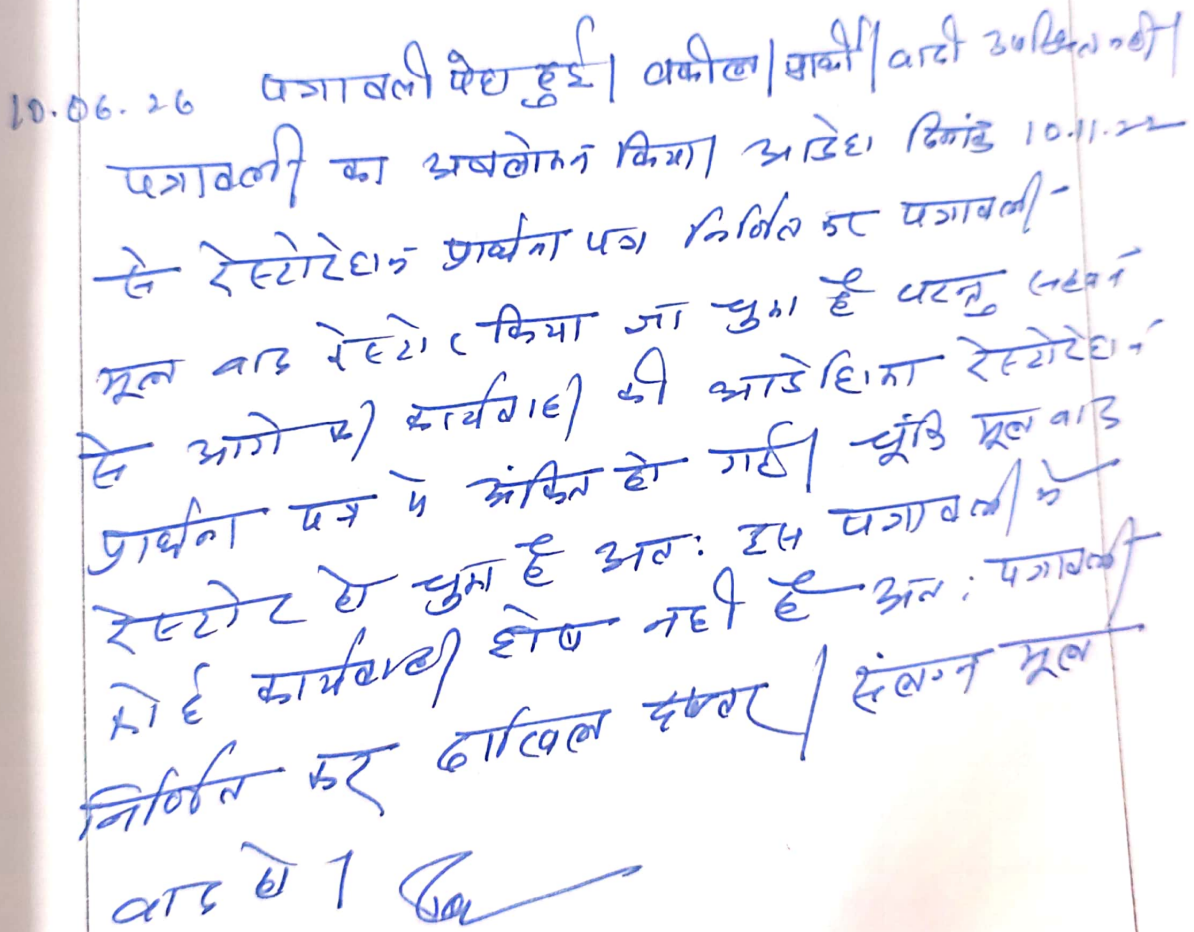 10.06.26 पत्रावली पेश हुई। वकील/प्रार्थी/वादी उपस्थित नही।
पत्रावली का अवलोकन किया। आदेश दिनांक 10.11.22
से रेस्टोरेशन प्रार्थना पत्र निर्णित कर पत्रावली
मूल वाद रेस्टोर किया जा चुका है परन्तु सहवन
से आगे की कार्यवाही की आदेशिका रेस्टोरेशन
प्रार्थना पत्र में अंकित हो गई। चूंकि मूल वाद
रेस्टोर हो चुका है अतः इस पत्रावली मे
कोई कार्यवाही शेष नही है अतः पत्रावली
निर्णित कर दाखिल दफ्तर। संलग्न मूल
वाद हो।